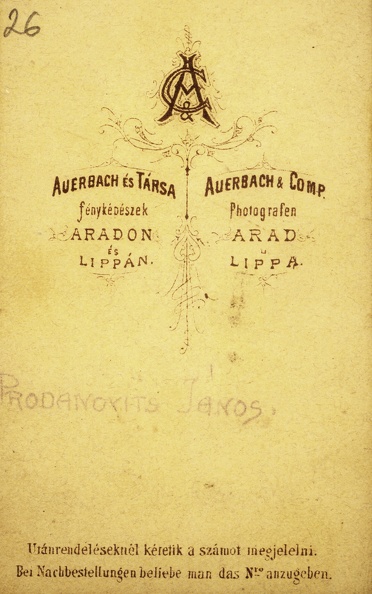 26
AC&
AUERBACH ÉS TÁRSA
fényképészek
ARADON
ÉS
LIPPÁN.
AUERBACH & COMP.
Photografen
ARAD
u
LIPPA.
PRODANOVITS JÁNOS.
Utánrendeléseknél kéretik a számot megjelelni.
Bei Nachbestellungen beliebe man das Nro anzugeben.